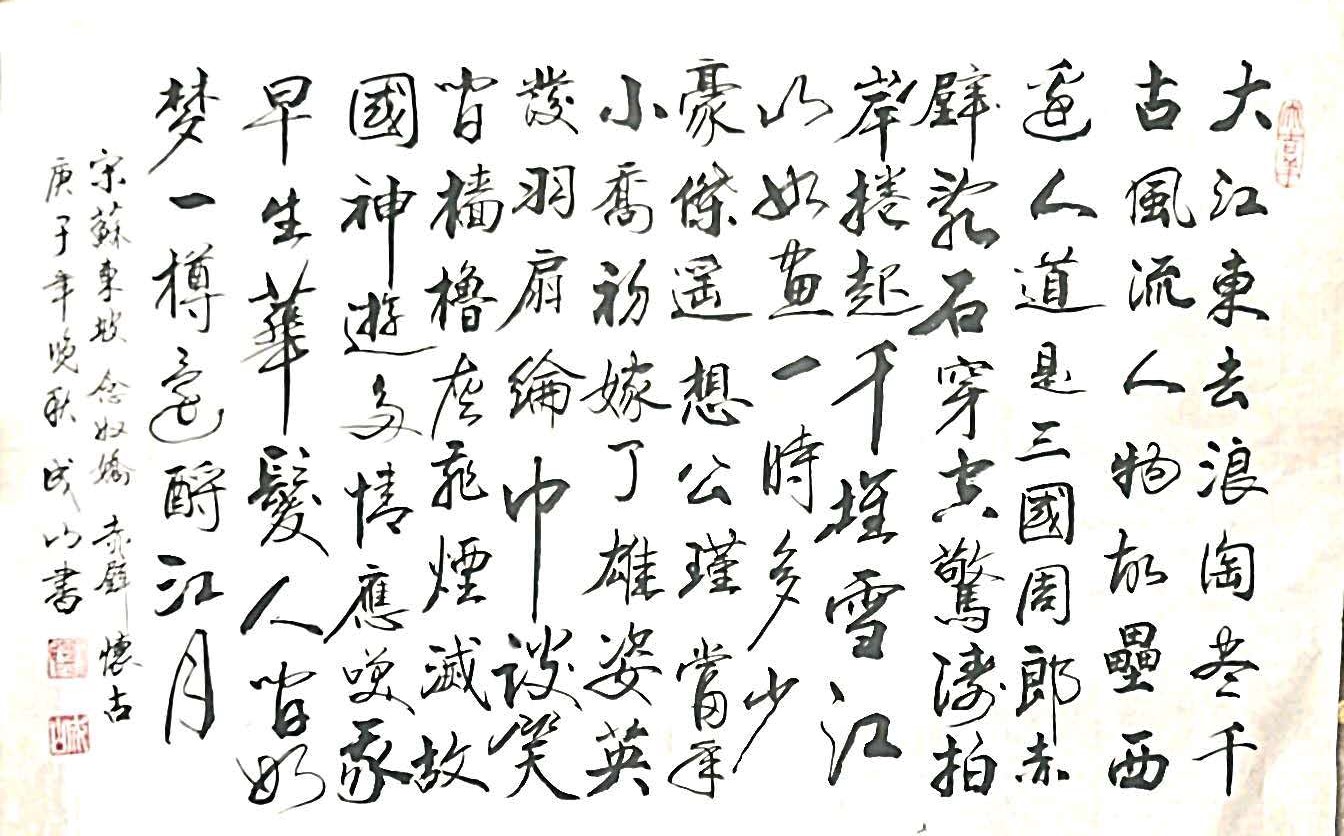 大江東去浪淘尽千
古風流人物故壘西
邊人道是三國周郎赤
壁亂石穿空驚濤拍
岸捲起千堆雪江
山如畫一時多少
豪傑遥想公瑾當年
小喬初嫁了雄姿英
發羽扇綸巾談笑
間檣櫓灰飛煙滅故
國神遊多情應笑我
早生華髮人間如
梦一樽還酹江月
宋蘇東坡念奴嬌赤壁懷古
庚子年晚秋成山書